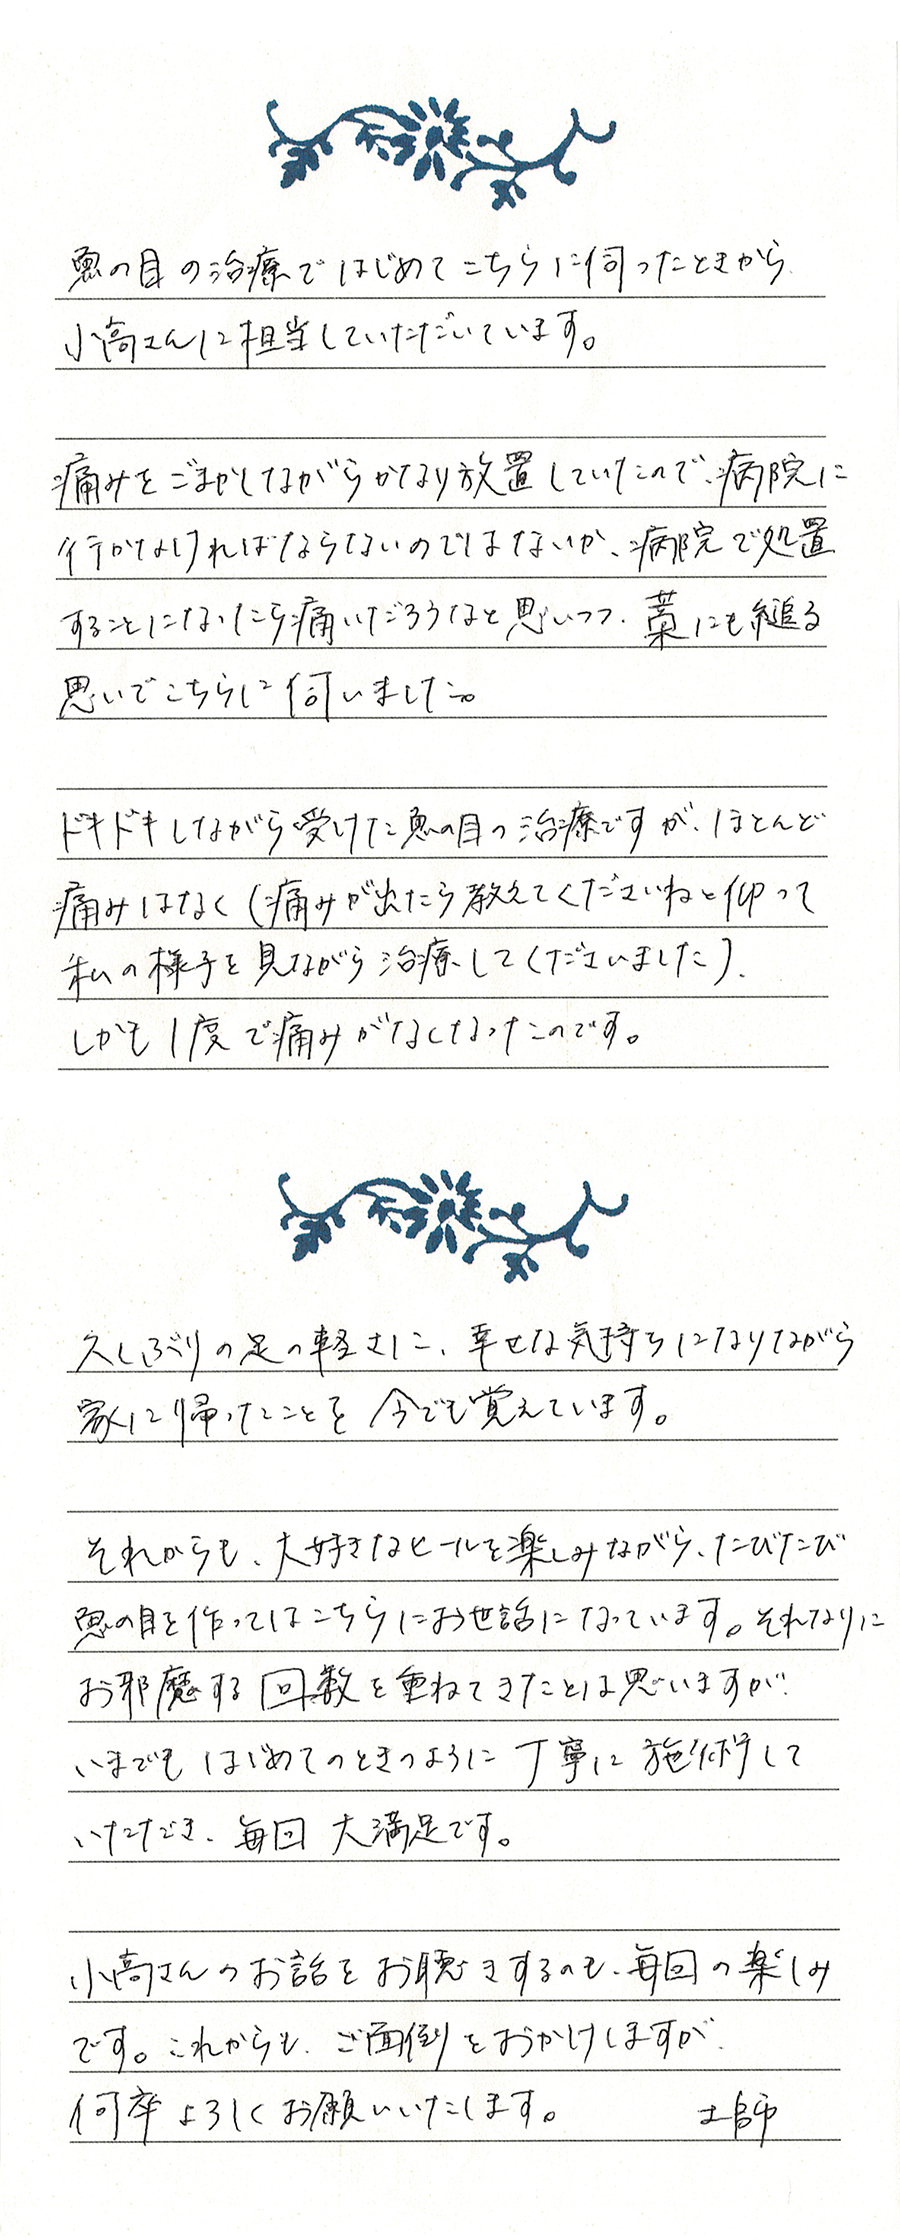 魚の目の治療ではじめてこちらに伺ったときから、
小高さんに担当していただいています。
痛みをごまかしながらかなり放置していたので、病院に
行かなければならないのではないか、病院で処置
することになったら痛いだろうなと思いつつ、藁にも縋る
思いでこちらに伺いました。
ドキドキしながら受けた魚の目の治療ですが、ほとんど
痛みはなく(痛みが出たら教えてくださいねと仰って
私の様子を見ながら治療してくださいました)、
しかも1度で痛みがなくなったのです。
久しぶりの足の軽さに、幸せな気持ちになりながら
家に帰ったことを今でも覚えています。
それからも、大好きなヒールを楽しみながら、たびたび
魚の目を作ってはこちらにお世話になっています。それなりに
お邪魔する回数を重ねてきたとは思いますが、
いまでもはじめてのときのように丁寧に施術して
いただき、毎回大満足です。
小高さんのお話をお聴きするのも、毎回の楽しみ
です。これからも、ご面倒をおかけしますが、
何卒よろしくお願いいたします。 土師